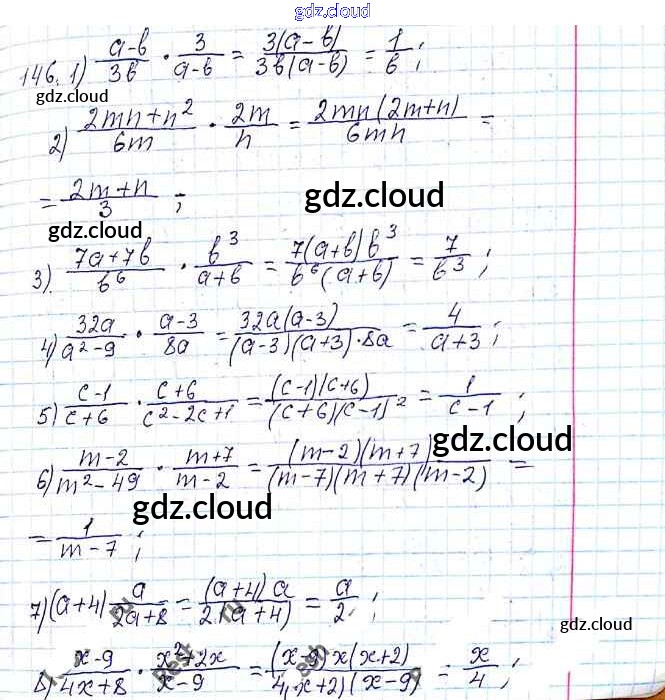 gdz.cloud
146. 1) (a-b)/(3b) · 3/(a-b) = 3(a-b)/(3b(a-b)) = 1/b ;
gdz.cloud
2) (2mn+n²)/(6m) · 2m/n = 2mn(2m+n)/(6mn) =
= (2m+n)/3 ;
gdz.cloud
gdz.cloud
3) (7a+7b)/b⁶ · b³/(a+b) = 7(a+b)b³/(b⁶(a+b)) = 7/b³ ;
4) 32a/(a²-9) · (a-3)/(8a) = 32a(a-3)/((a-3)(a+3)·8a) = 4/(a+3) ;
5) (c-1)/(c+6) · (c+6)/(c²-2c+1) = (c-1)(c+6)/((c+6)(c-1)²) = 1/(c-1) ;
gdz.cloud
6) (m-2)/(m²-49) · (m+7)/(m-2) = (m-2)(m+7)/((m-7)(m+7)(m-2)) =
gdz.cloud
= 1/(m-7) ;
7) (a+4) a/(2a+8) = (a+4)a/(2(a+4)) = a/2 ;
gdz.cloud
8) (x-9)/(4x+8) · (x²+2x)/(x-9) = (x-9)x(x+2)/(4(x+2)(x-9)) = x/4 ;